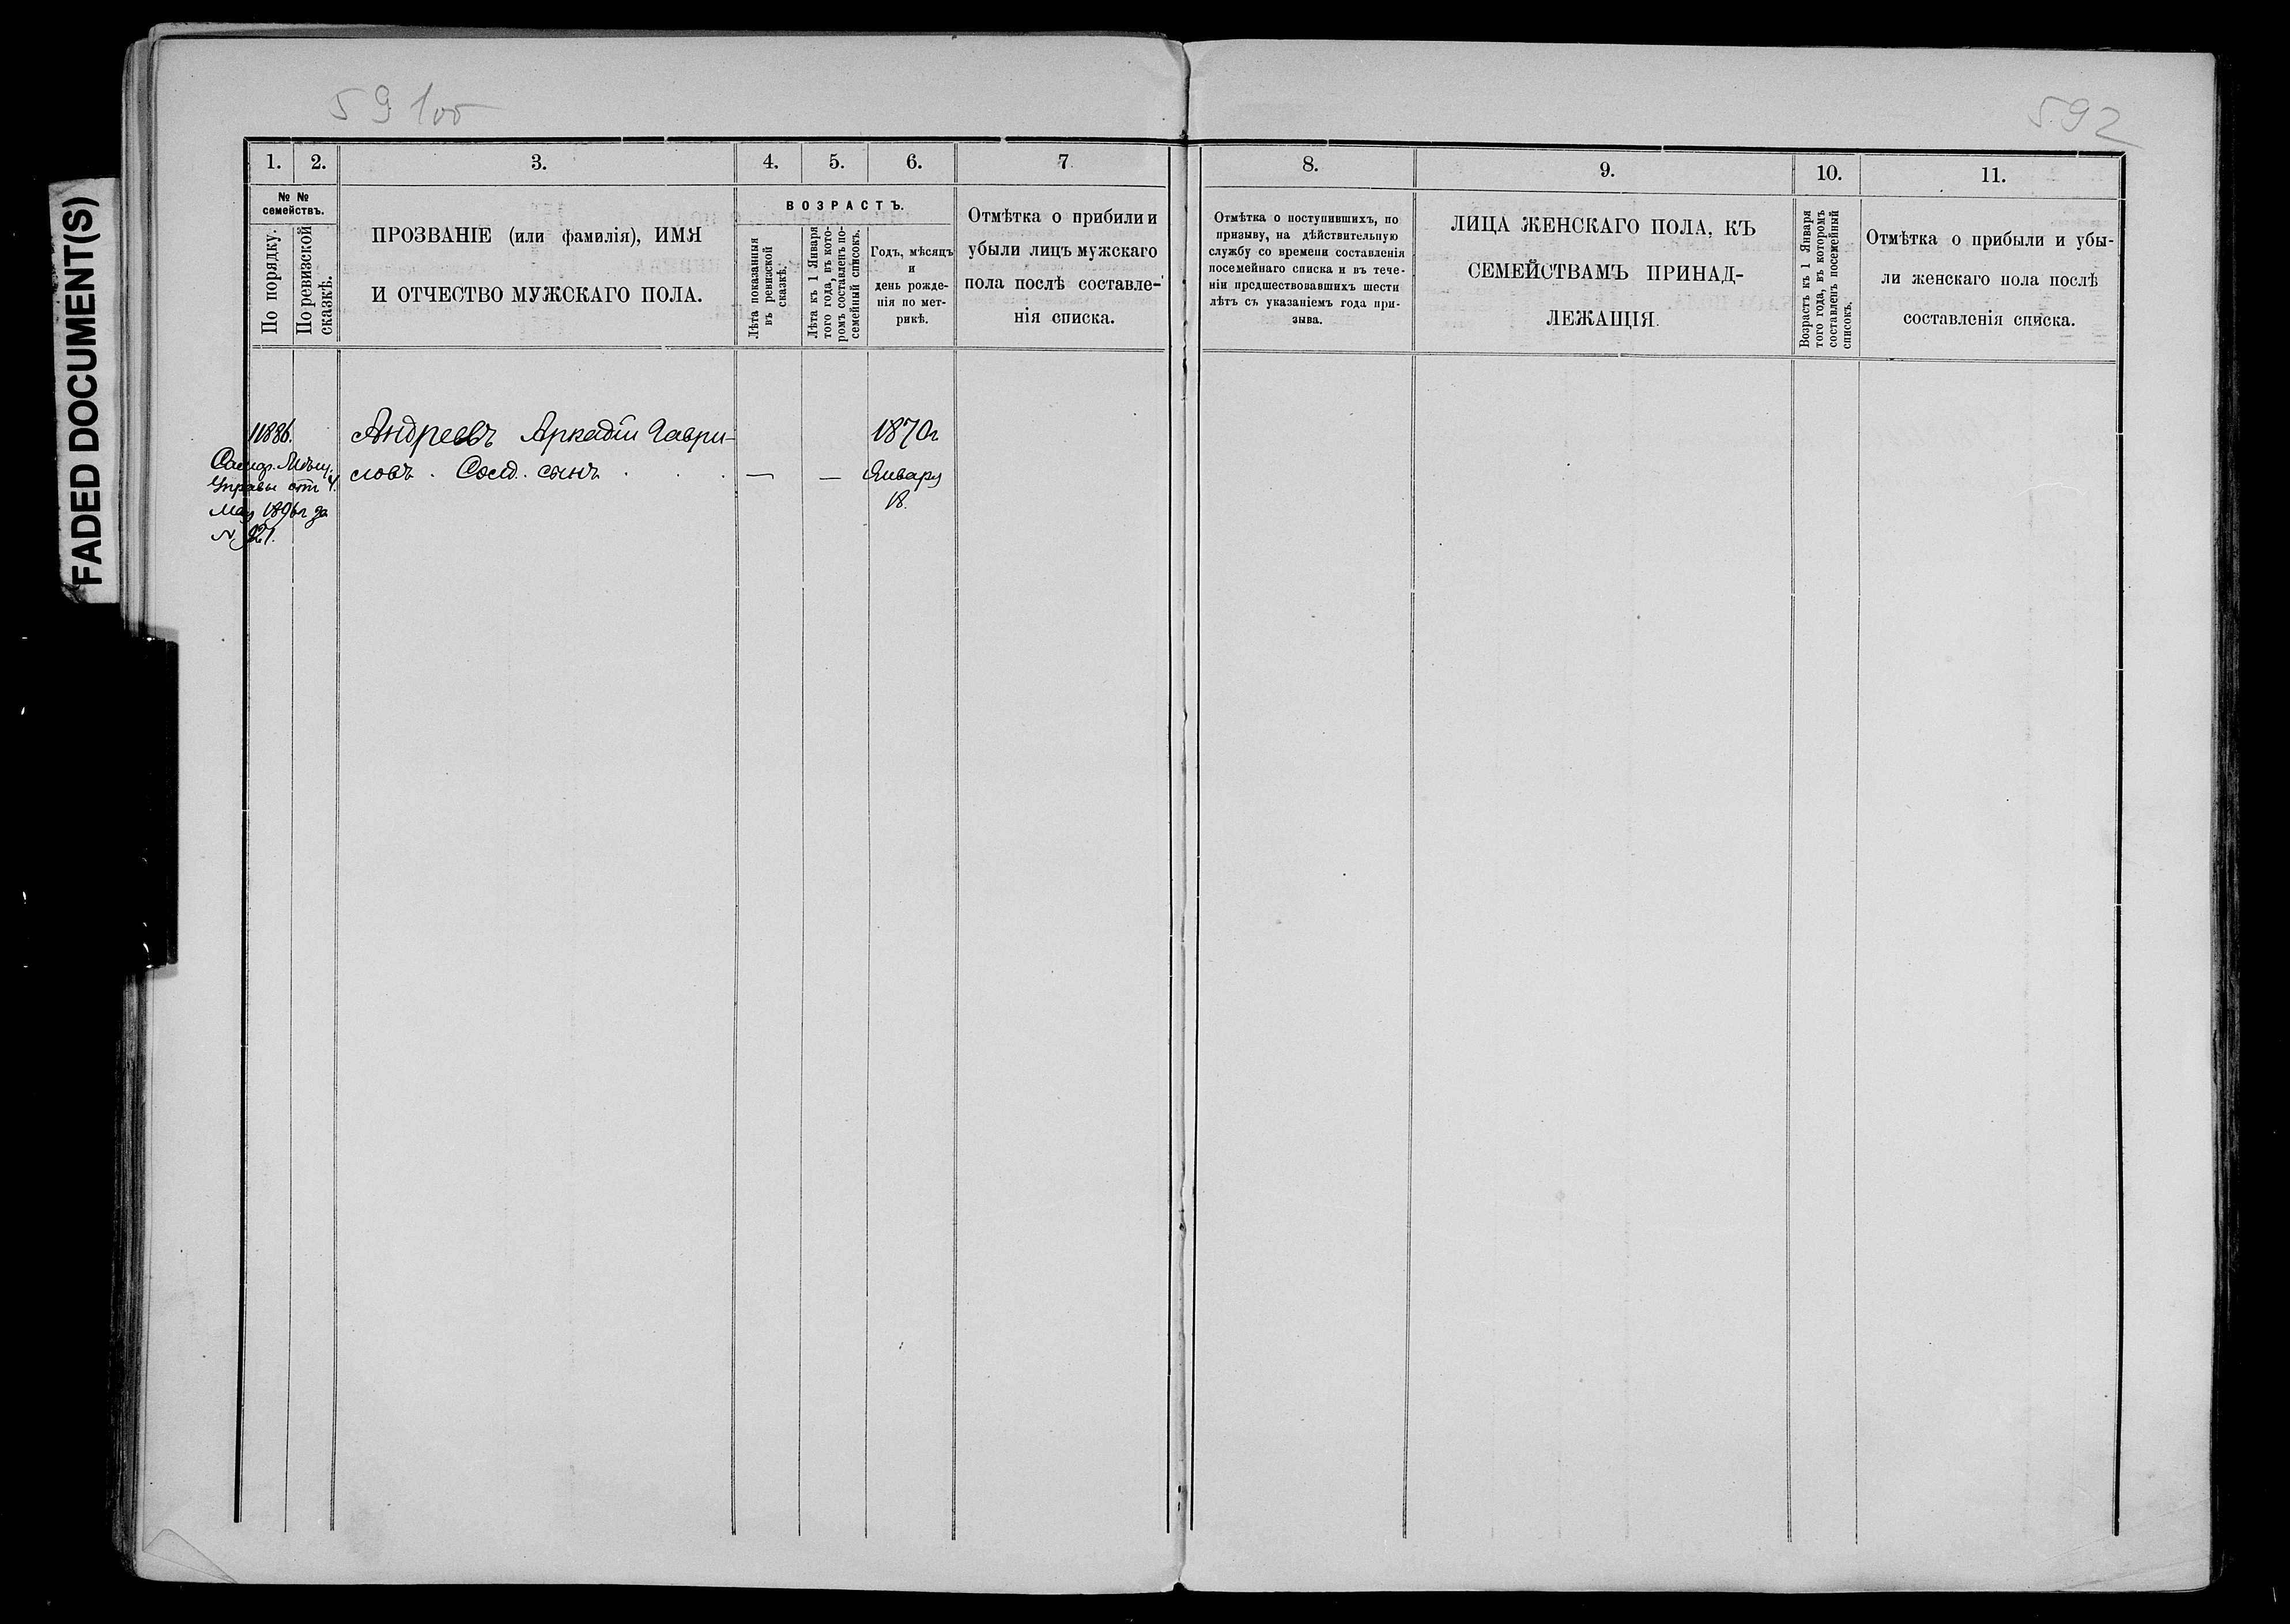 FADED DOCUMENT(S)
591об
592
1.
2.
3.
4.
5.
6.
7
8.
9.
10.
11.
№ №
семействъ.
По порядку.
По ревизской
сказкѣ.
ПРОЗВАНІЕ (или фамилія), ИМЯ
И ОТЧЕСТВО МУЖСКАГО ПОЛА.
ВОЗРАСТЪ.
Лѣта показанныя
въ ревизской
сказкѣ.
Лѣта къ 1 Января
того года, въ кото-
ромъ составленъ по-
семейный списокъ.
Годъ, мѣсяцъ
и
день рожде-
нія по мет-
рикѣ.
Отмѣтка о прибили и
убыли лицъ мужскаго
пола послѣ составле-
нія списка.
Отмѣтка о поступившихъ, по
призыву, на дѣйствительную
службу со времени составленія
посемейнаго списка и въ тече-
ніи предшествовавшихъ шести
лѣтъ съ указаніемъ года при-
зыва.
ЛИЦА ЖЕНСКАГО ПОЛА, КЪ
СЕМЕЙСТВАМЪ ПРИНАД-
ЛЕЖАЩІЯ.
Возрастъ къ 1 Января
того года, въ которомъ
составленъ посемейный
списокъ.
Отмѣтка о прибыли и убы-
ли женскаго пола послѣ
составленія списка.
11886.
Мѣщ.
Управы отъ 4.
Мая 1896г за
N 921.
Андреевъ Аркадій Гаври-
ловъ. Солд. сынъ
— —
1870г
Января
18.